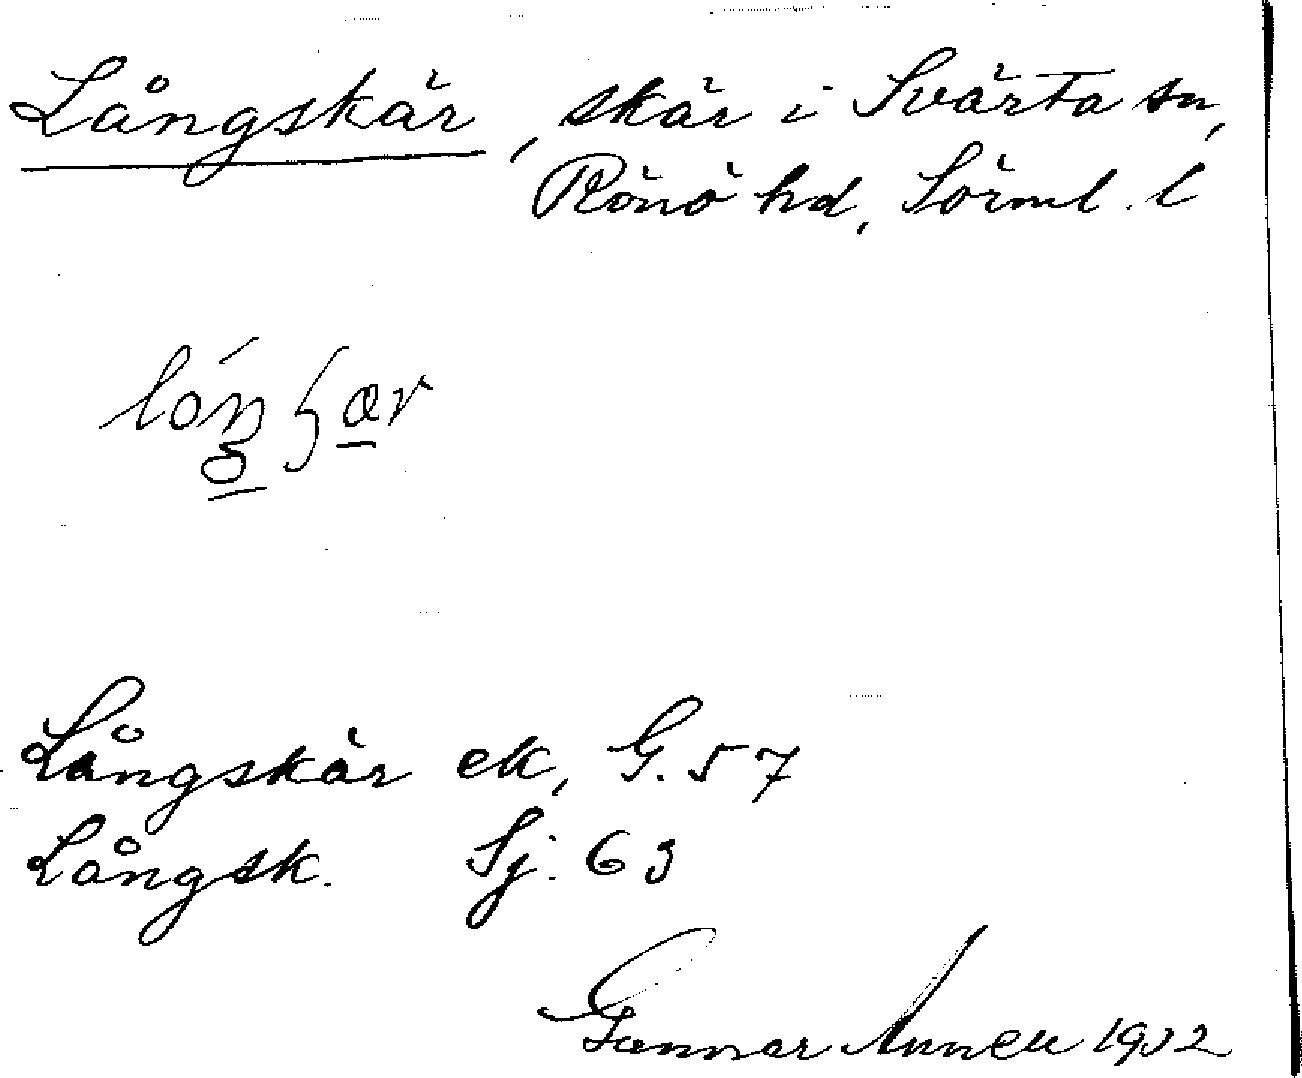 Långskär, skär i Svärta sn,
Rönö hd, Sörml. l
Långskär ek, G. 57
Långsk. Sj. 63
Gunnar